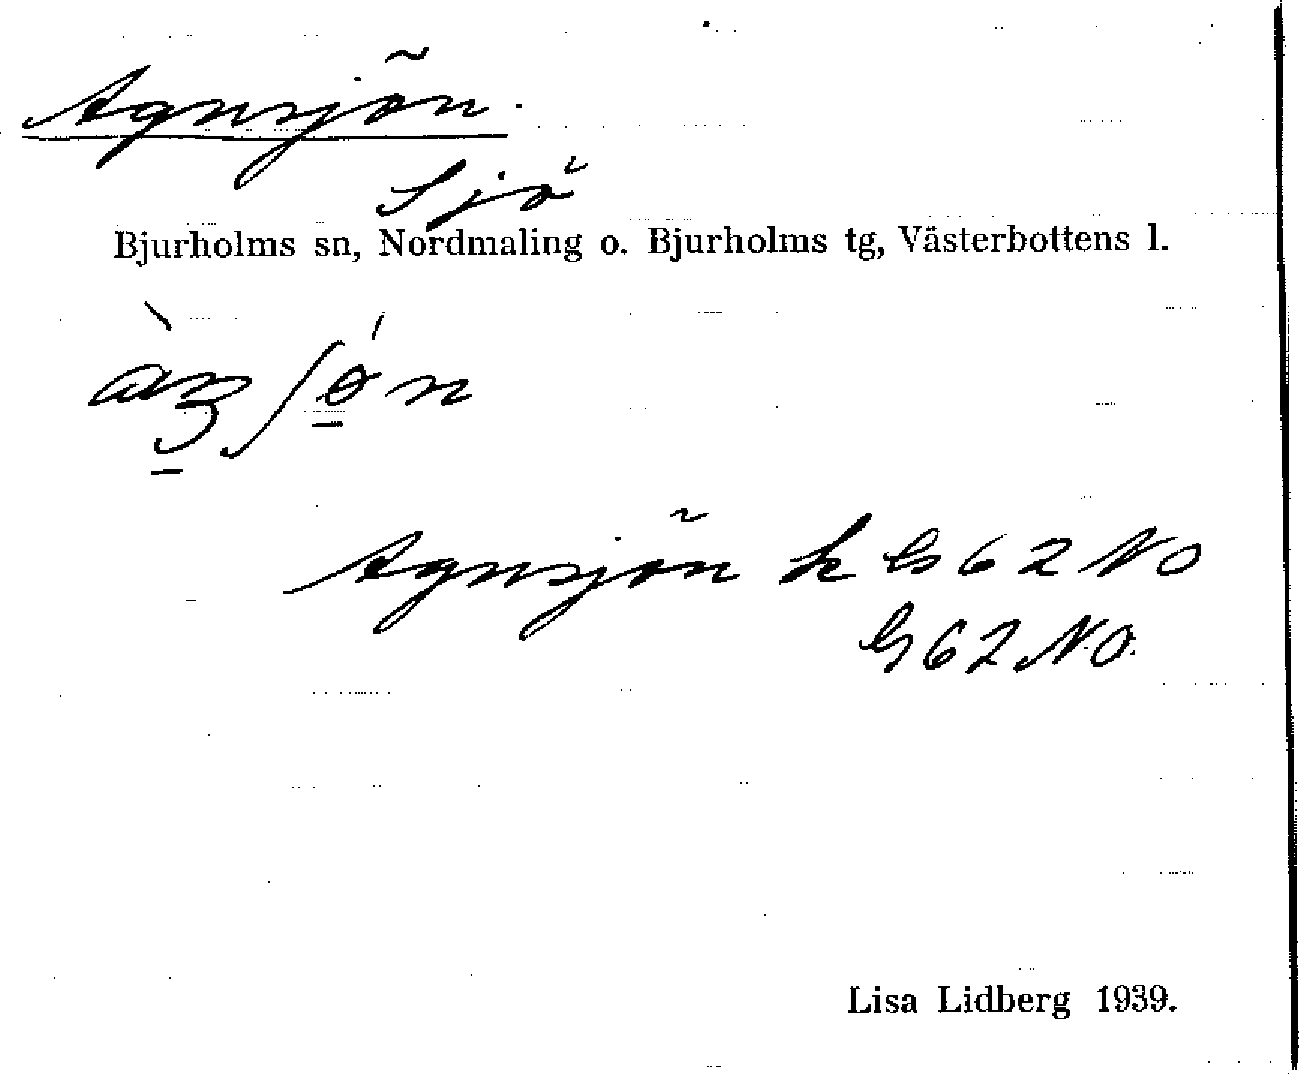 Agnsjön.
Sjö
Bjurholms sn, Nordmaling o. Bjurholms tg, Västerbottens l.
Agnsjön k G 62 NO
G 62 NO.
Lisa Lidberg 1939.